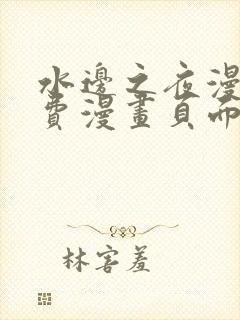 水邊之夜漫
費漫畫頁面
林害羞